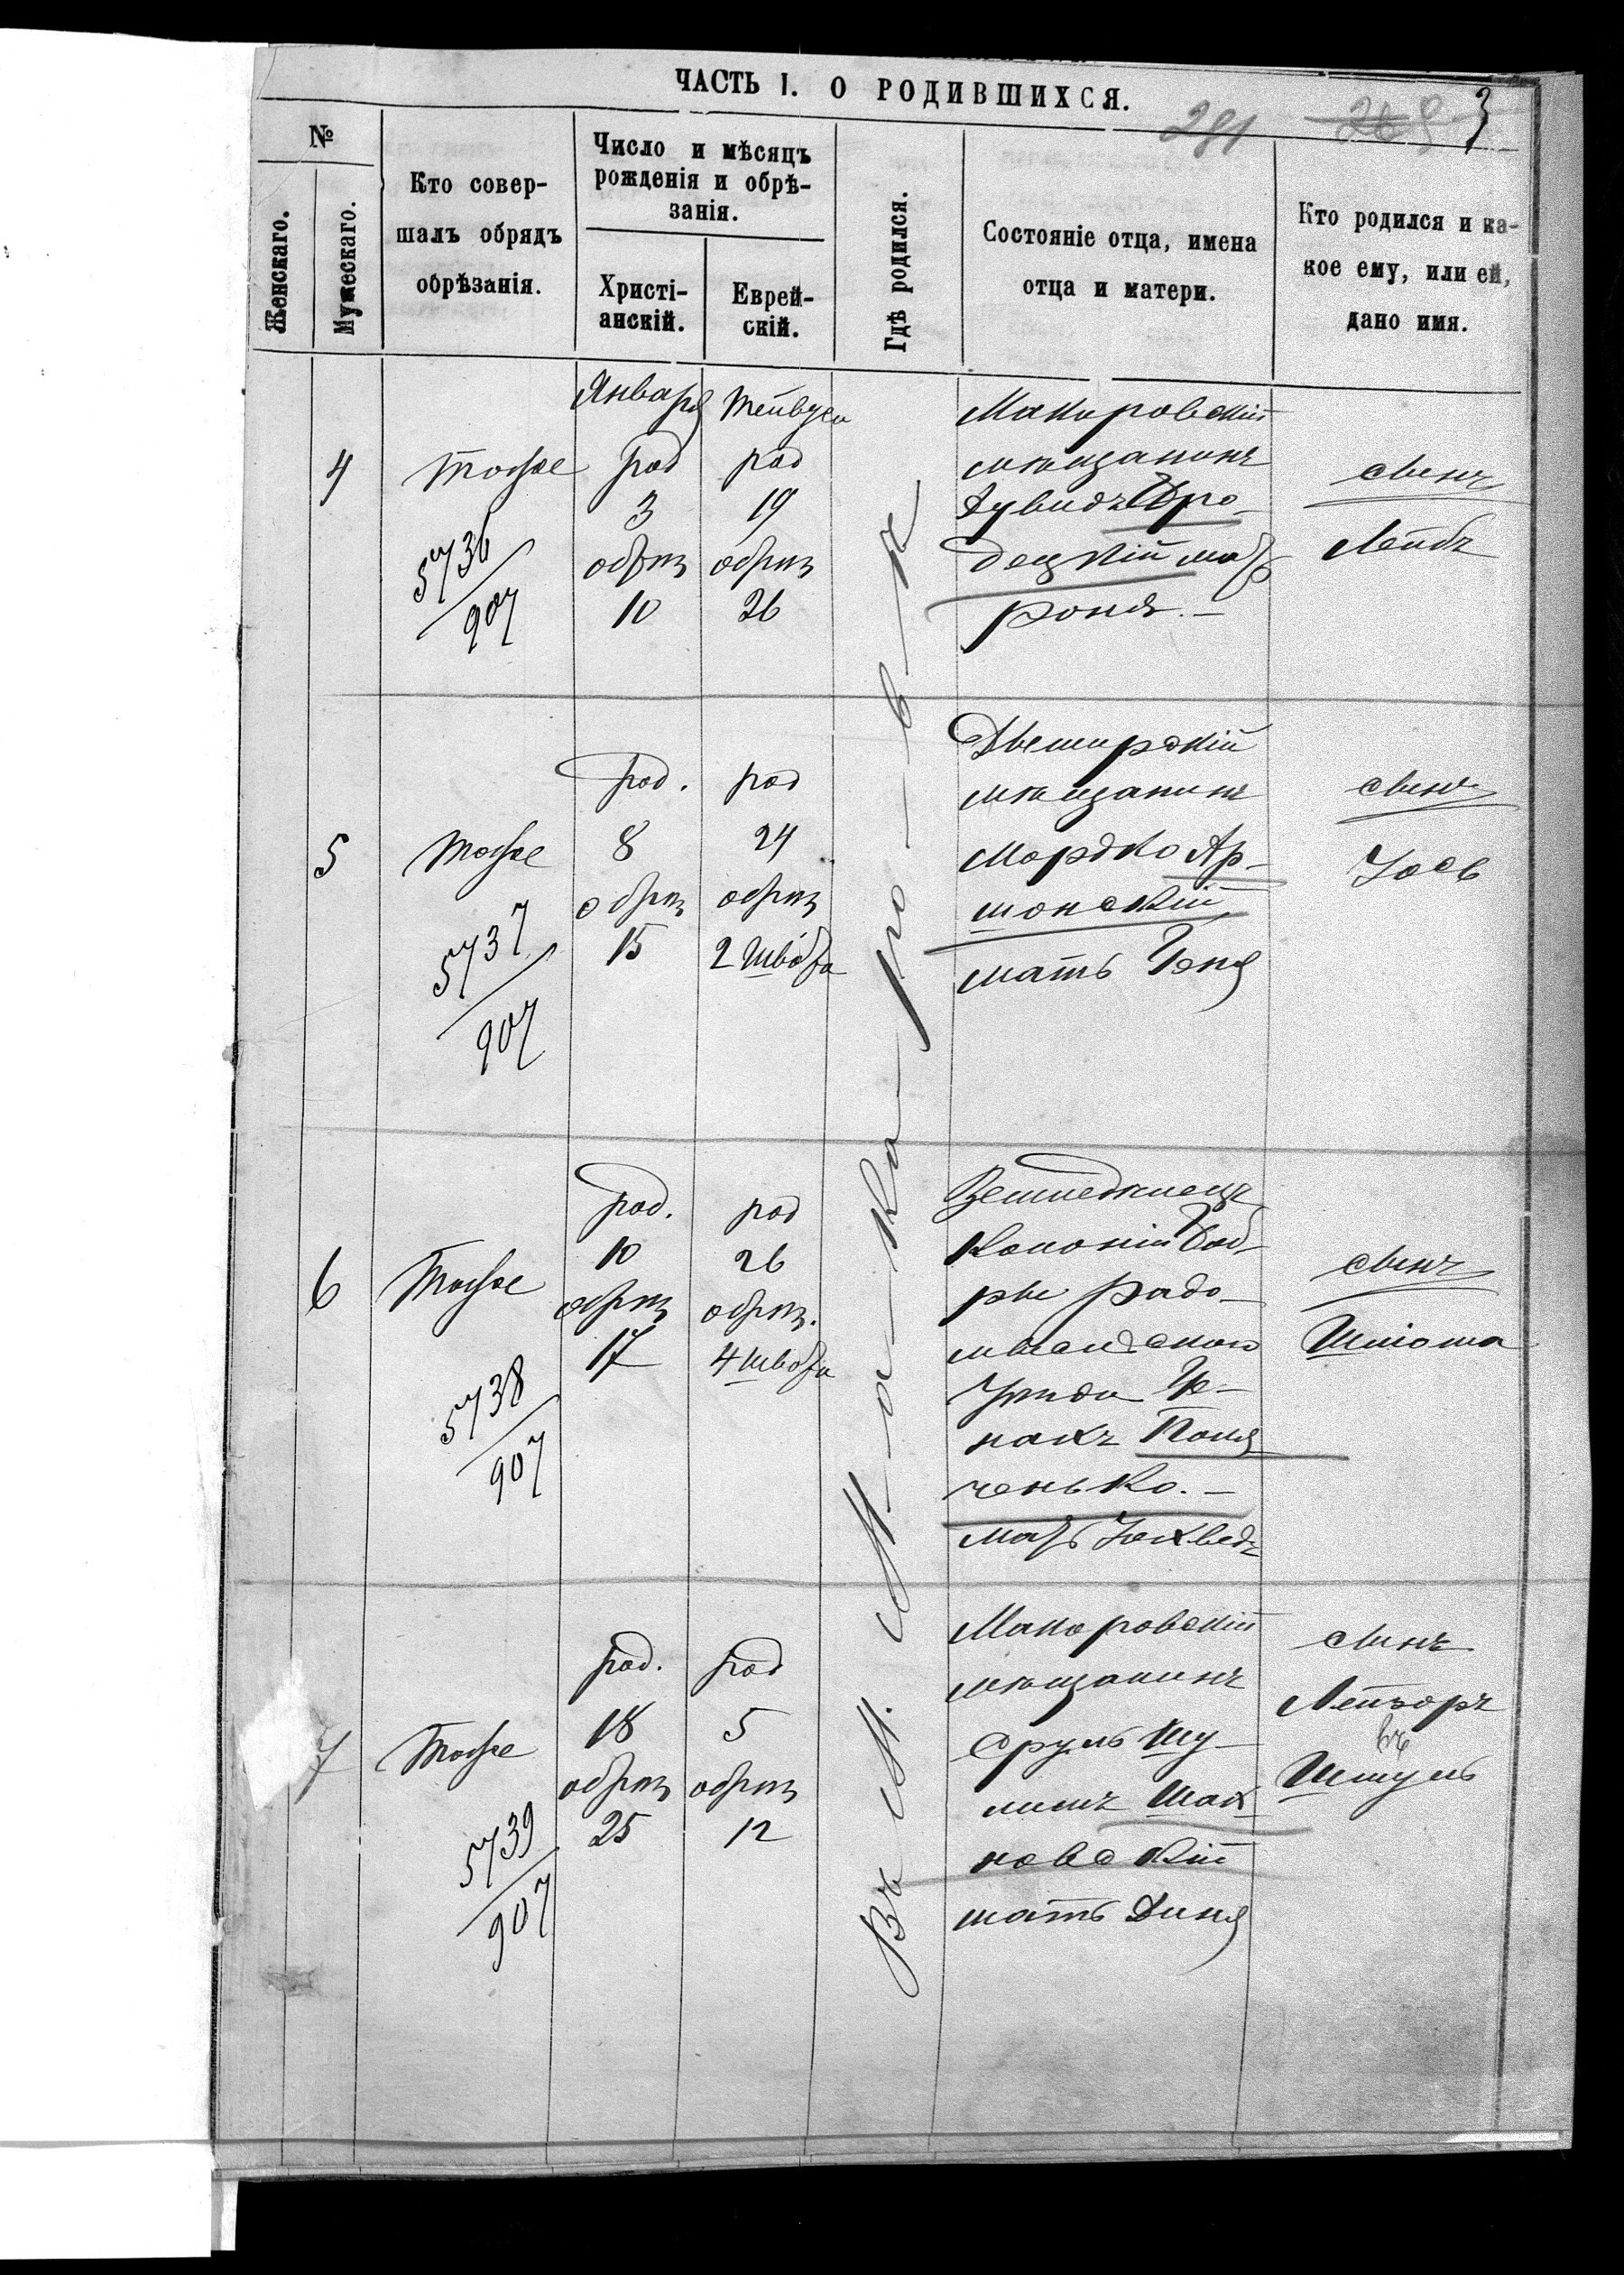 ЧАСТЬ I. О РОДИВШИХСЯ.
281
3
№
Женскаго.
Мужескаго.
Кто совер-
шалъ обрядъ
обрѣзанія.
Число и мѣсяцъ
рожденія и обрѣ-
занія.
Христі-
анскій.
Еврей-
скій.
Гдѣ родился.
Состояніе отца, имена
отца и матери.
Кто родился и ка-
кое ему, или ей,
дано имя.
Въ М. М-а-ка-ро-в-ѣ
4
тоже
5736/907
Января
род
3
обрѣз
10
Тейвуса
род
19
обрѣз
26
Макаровскій
мѣщанинъ
Дувидъ Бро-
децкій мать
Роня.-
сынъ
Лейбъ
5
тоже
5737/907
род.
8
обрѣз
15
род
24
обрѣз
2 Швота
мѣщанинъ
Мордко Ар-
шонскій
мать Геня
сынъ
Іось
6
тоже
5738/907
род.
10
обрѣз
17
род
26
обрѣз.
4 Швота
Земледѣлецъ
Колоніи Боб-
рые Радо-
мысльскаго
Уѣзда
ченько.-
мать Іохведъ
сынъ
Шліома
7
тоже
5739/907
род.
18
обрѣз
25
род
5
обрѣз
12
Макаровскій
мѣщанинъ
Сруль Шу-
лимъ Шах-
новскій
мать Диня
сынъ
Лейзоръ
Шмуль